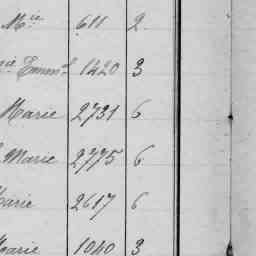 Mie 611 2
cie Emml 1420 3
Marie 2731 6
Marie 2775 6
Marie 2617 6
Marie 1040 3